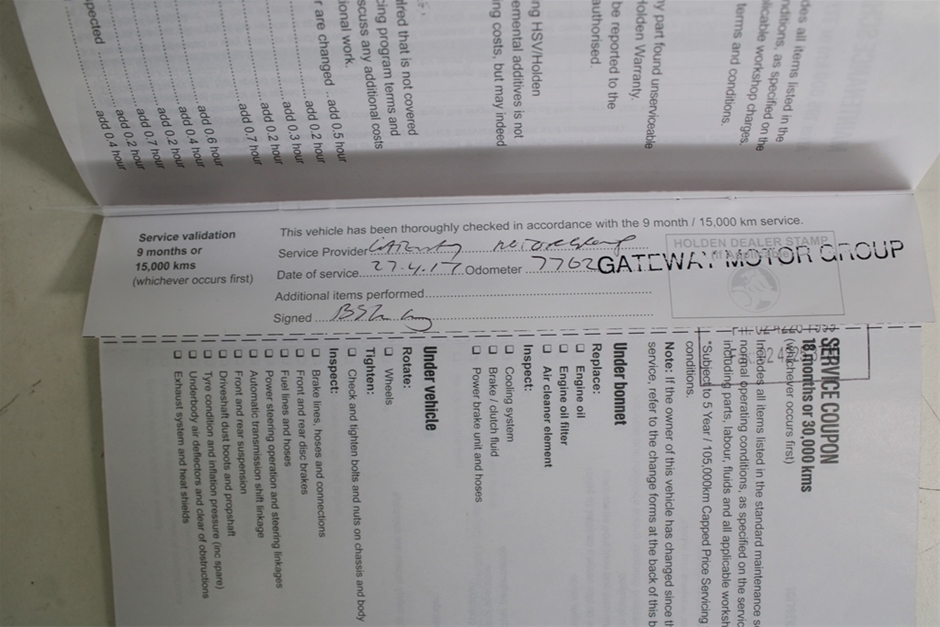 des all items listed in the
nditions, as specified on the
licable workshop charges.
terms and conditions.
y part found unserviceable
Holden Warranty.
be reported to the
authorised.
ng HSV/Holden
emental additives is not
ng costs, but may indeed
ired that is not covered
cing program terms and
scuss any additional costs
ional work.
r are changed ..add 0.5 hour
add 0.2 hour
add 0.3 hour
add 0.2 hour
add 0.7 hour
add 0.6 hour
add 0.4 hour
add 0.2 hour
add 0.7 hour
add 0.2 hour
pected
add 0.4 hour
Service validation
9 months or
15,000 kms
(whichever occurs first)
This vehicle has been thoroughly checked in accordance with the 9 month / 15,000 km service.
Service Provider Gateway Motor Group
Date of service 27.4.17 Odometer 7762
Additional items performed
Signed
HOLDEN DEALER STAMP
GATEWAY MOTOR GROUP
SERVICE COUPON
18 months or 30,000 kms
(whichever occurs first)
Includes all items listed in the standard maintenance s
normal operating conditions, as specified on the servic
including parts, labour, fluids and all applicable worksh
*Subject to 5 Year / 105,000km Capped Price Servicing
conditions.
Note: If the owner of this vehicle has changed since t
service, refer to the change forms at the back of this b
Under bonnet
Replace:
❑ Engine oil
❑ Engine oil filter
❑ Air cleaner element
Inspect:
❑ Cooling system
❑ Brake / clutch fluid
❑ Power brake unit and hoses
Under vehicle
Rotate:
❑ Wheels
Tighten:
❑ Check and tighten bolts and nuts on chassis and body
Inspect:
❑ Brake lines, hoses and connections
❑ Front and rear disc brakes
❑ Fuel lines and hoses
❑ Power steering operation and steering linkages
❑ Automatic transmission shift linkage
❑ Front and rear suspension
❑ Driveshaft dust boots and propshaft
❑ Tyre condition and inflation pressure (inc spare)
❑ Underbody air deflectors and clear of obstructions
❑ Exhaust system and heat shields